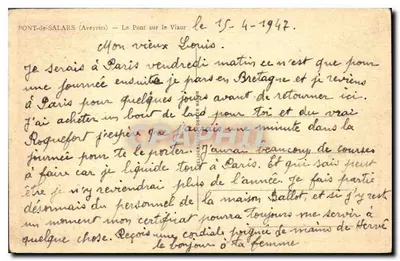 PONT-de-SALARS (Aveyron) — Le Pont sur le Viaur
le 15-4-1947.
Mon vieux Louis.
Je serais à Paris vendredi matin ce n'est que pour
une journée ensuite je pars en Bretagne et je reviens
à Paris pour quelques jours avant de retourner ici.
J'ai acheter un bout de lard pour Toi et du vrai
Roquefort j'espère que j'aurais une minute dans la
journée pour te le porter. J'aurai beaucoup de courses
à faire car je liquide tout à Paris. Et qui sais peut
être je n'y reviendrai plus de l'année. Je fais partie
désormais du personnel de la maison Ballot, et si j'y reste
un moment mon certificat pourra toujours me servir à
quelque chose. Reçois une cordiale poignée de mains de Hervé
le bonjour à ta femme